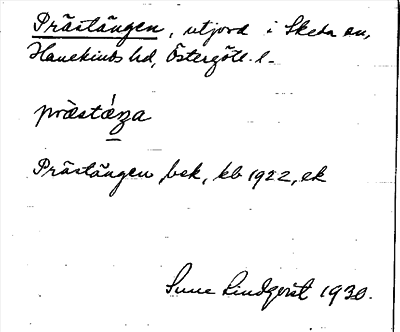 Prästängen, utjord i Skeda sn,
Hanekinds hd, Östergötl. l.
præstæ̀ŋa
Prästängen bek, kb 1922, ek
Sune Lindqvist 1930.